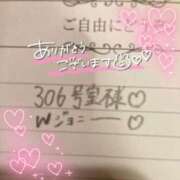 ご自由にどうぞ
ありがとう
ございます
306号室様♡
Wジョニー♡